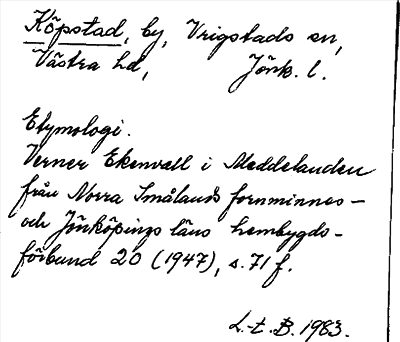 Köpstad, by, Vrigstads sn,
Västra hd, Jönk. l.
Etymologi.
Verner Ekenvall i Meddelanden
från Norra Smålands fornminnes-
och Jönköpings läns hembygds-
förbund 20 (1947), s. 71 f.
L. t. B. 1983.